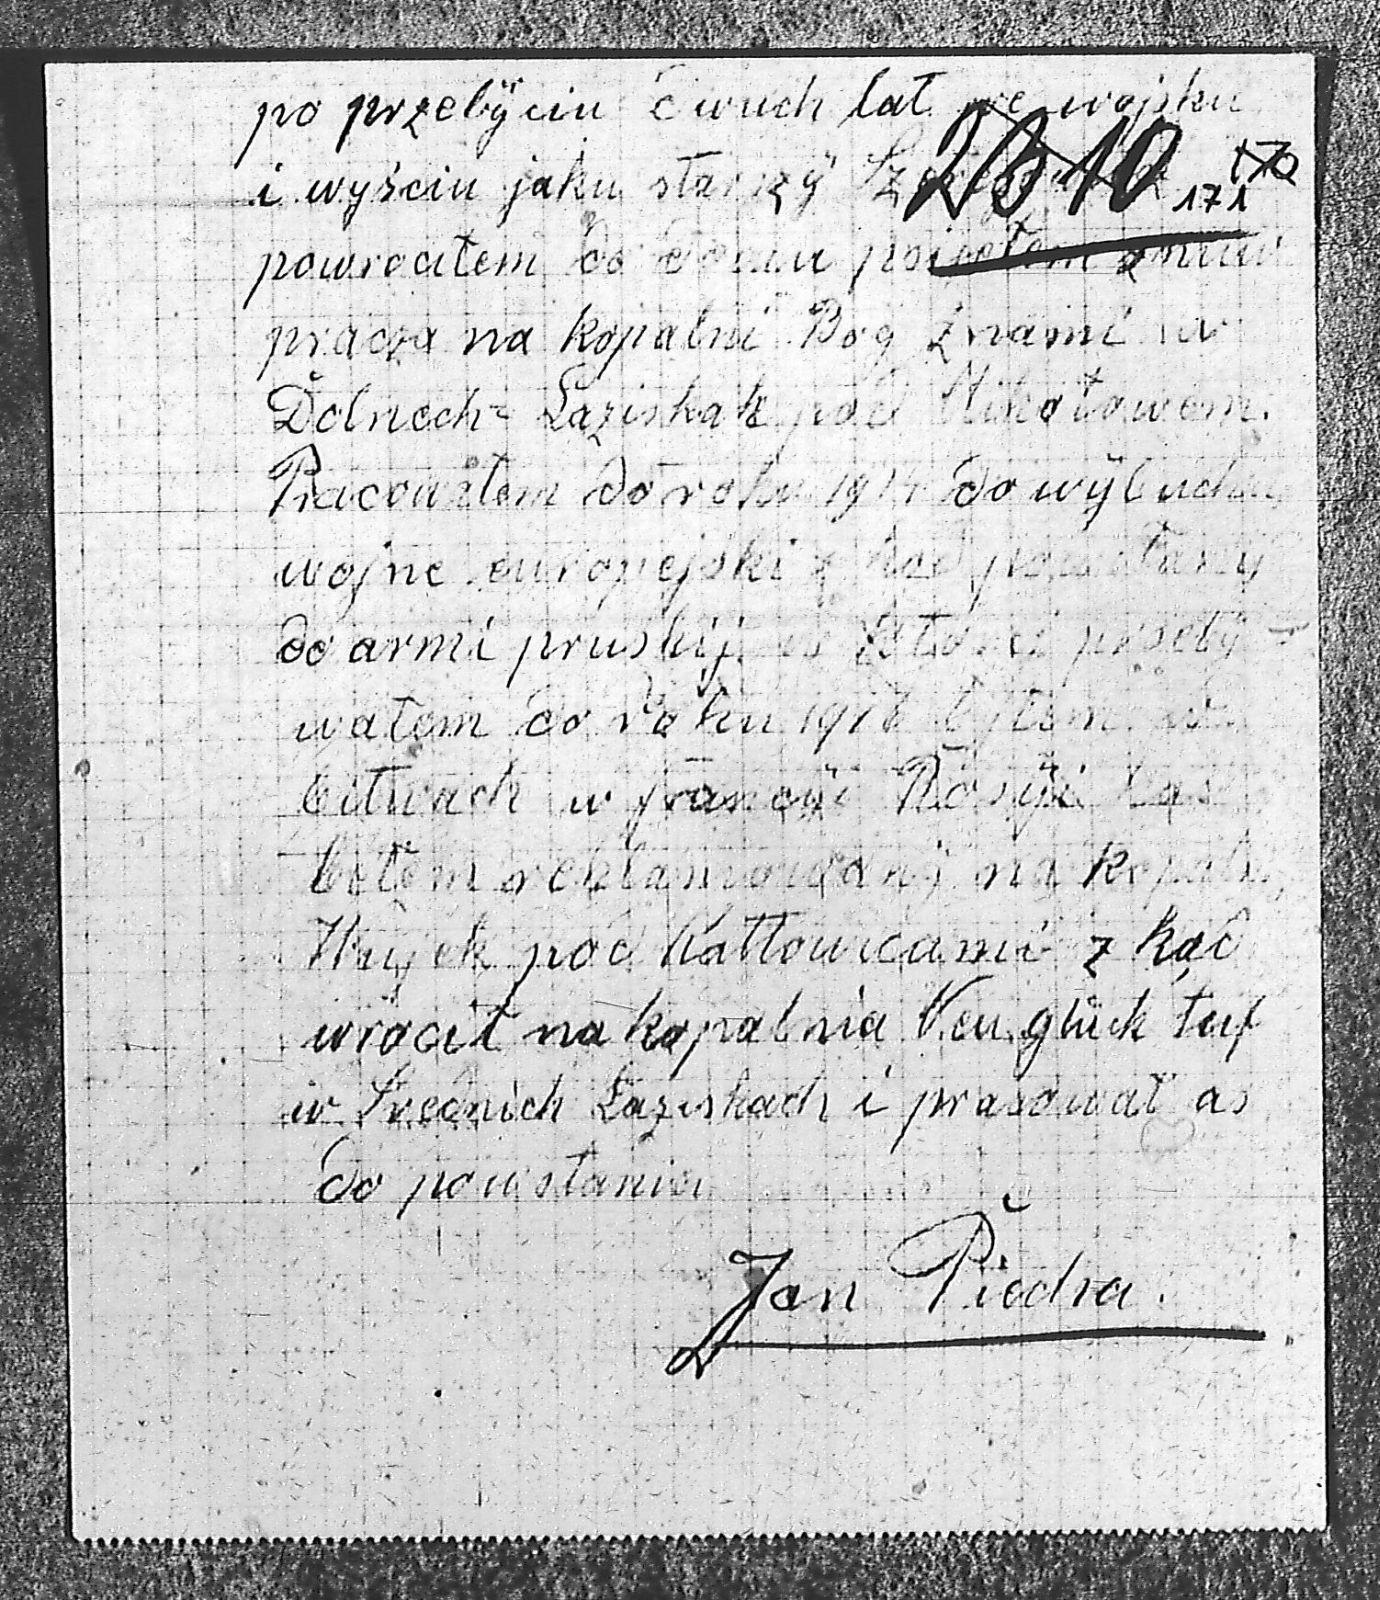 po przebyciu dwuch lat we wojsku
i wyściu jaku starszy
2310 171 170
powrociłem do domu
praczą na kopalni Bog znami w
Dolnech Łaziskak pod Mikołowem.
Pracowałem do roku 1914 do wybuchu
wojne europejski z kąd powołany
do armi pruskij przeby-
wałem do roku 1918 byłem w
bitwach w francyi Rosyi
bełem reklamowany na kopaln
Wujek pod Kattowicami z kąd
wrócił na kopalnia Neu glück tuf
w Srednich Łaziskach i prasował as
do powstania
Jan Piedra.